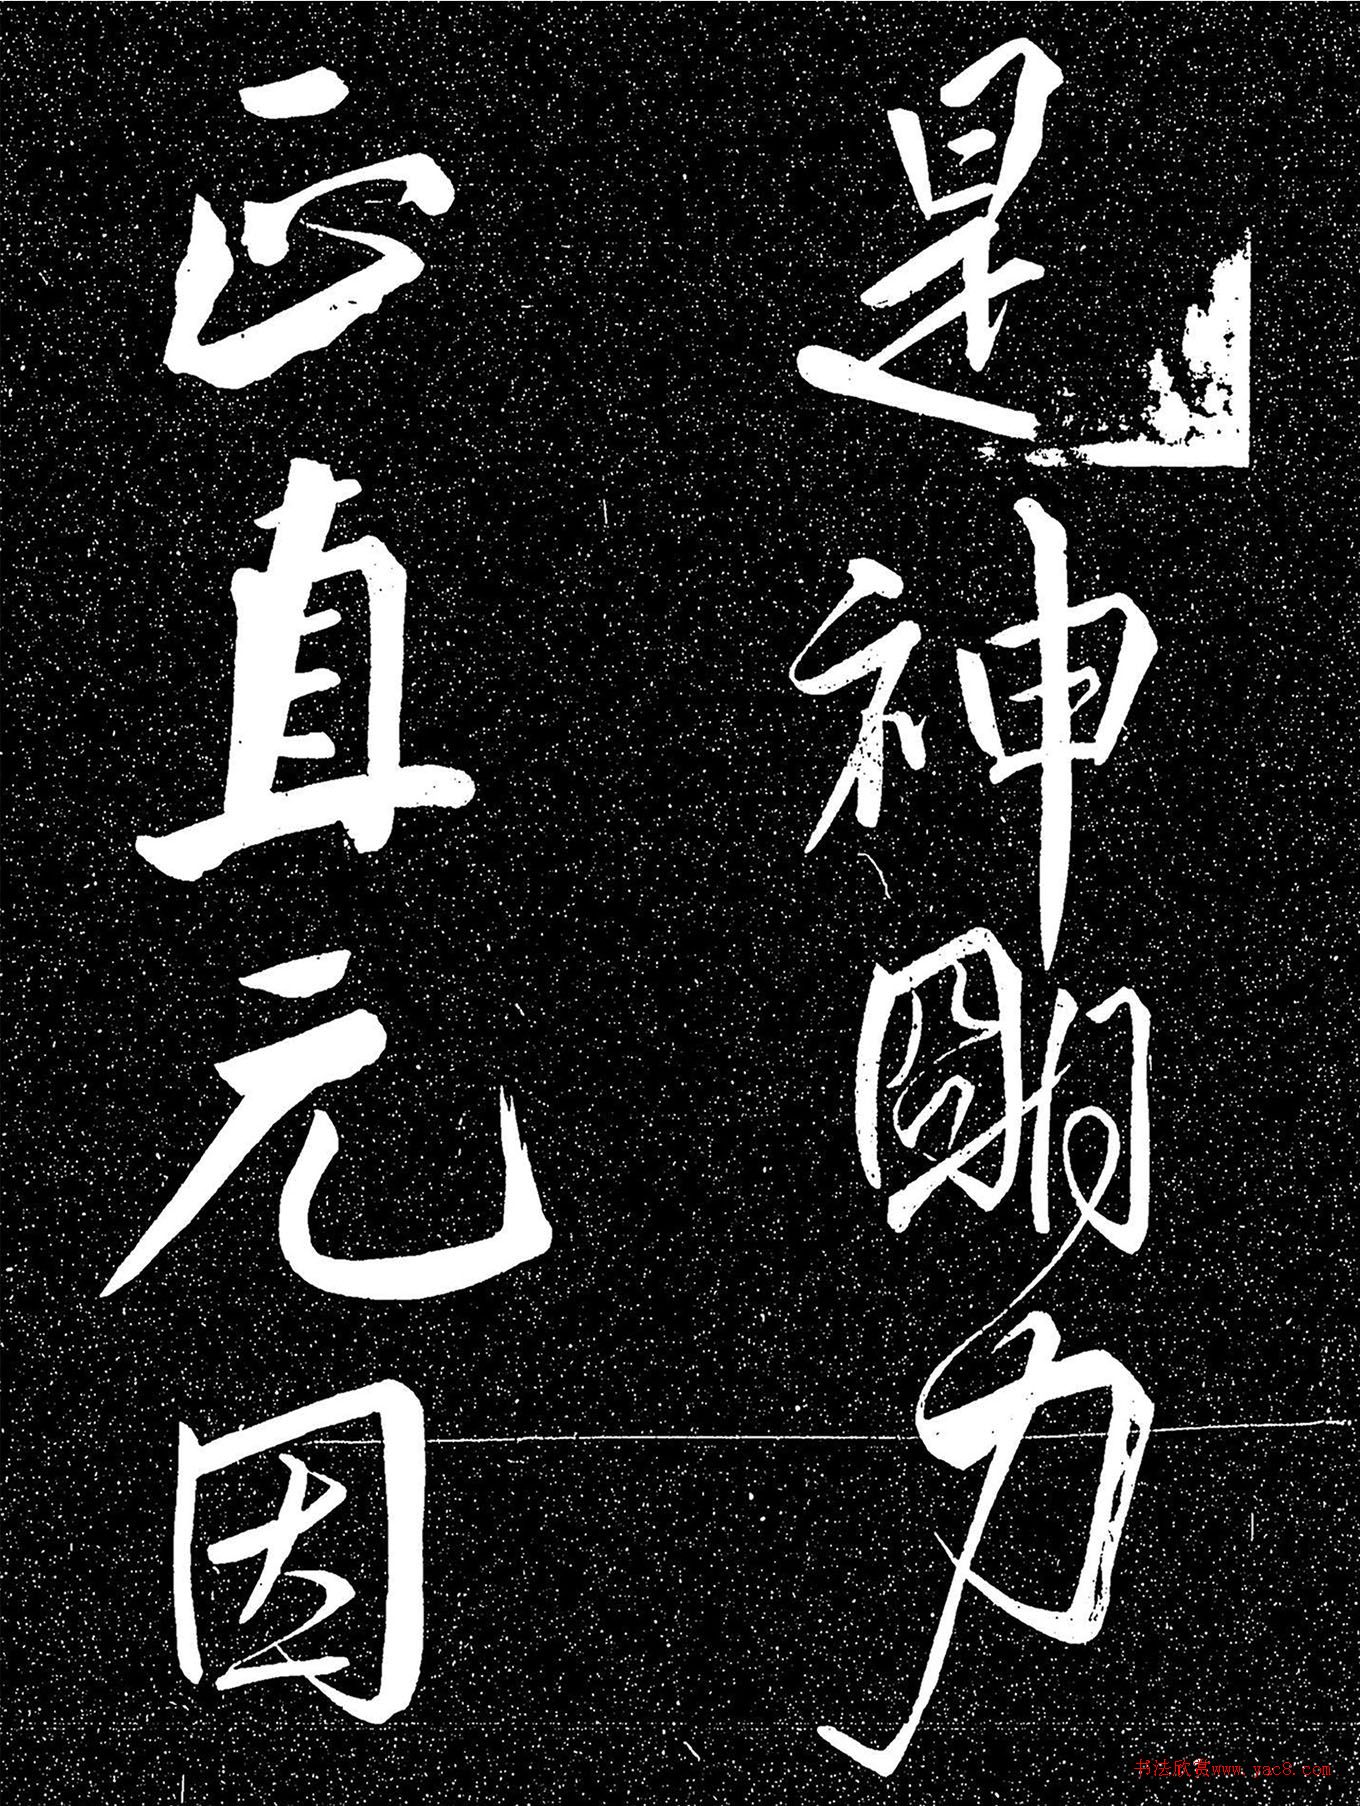 是神明力
正直元因
书法欣赏www.yac8.com